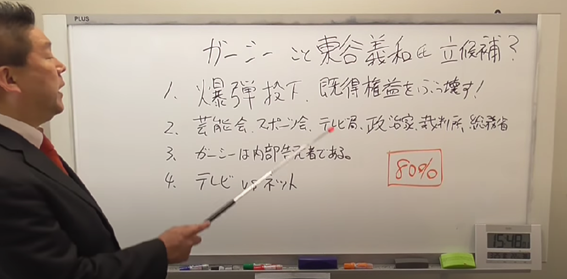 PLUS
ガーシーこと東谷義和氏立候補?
1. 爆弾投下、既得権益をぶっ壊す!
2. 芸能会、スポーツ会、テレビ局、政治家、裁判所、総務省
3. ガーシーは内部告発者である。
4. テレビ vs ネット
80%
15:48